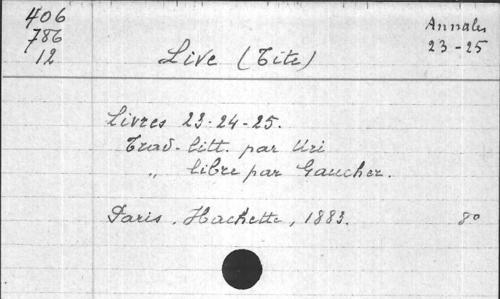 406
786
12
Annales
23-25
Live (Tite)
Livres 23-24-25.
Trad. litt. par Uri
„ libre par Gaucher.
Paris, Hachette, 1883. 8º